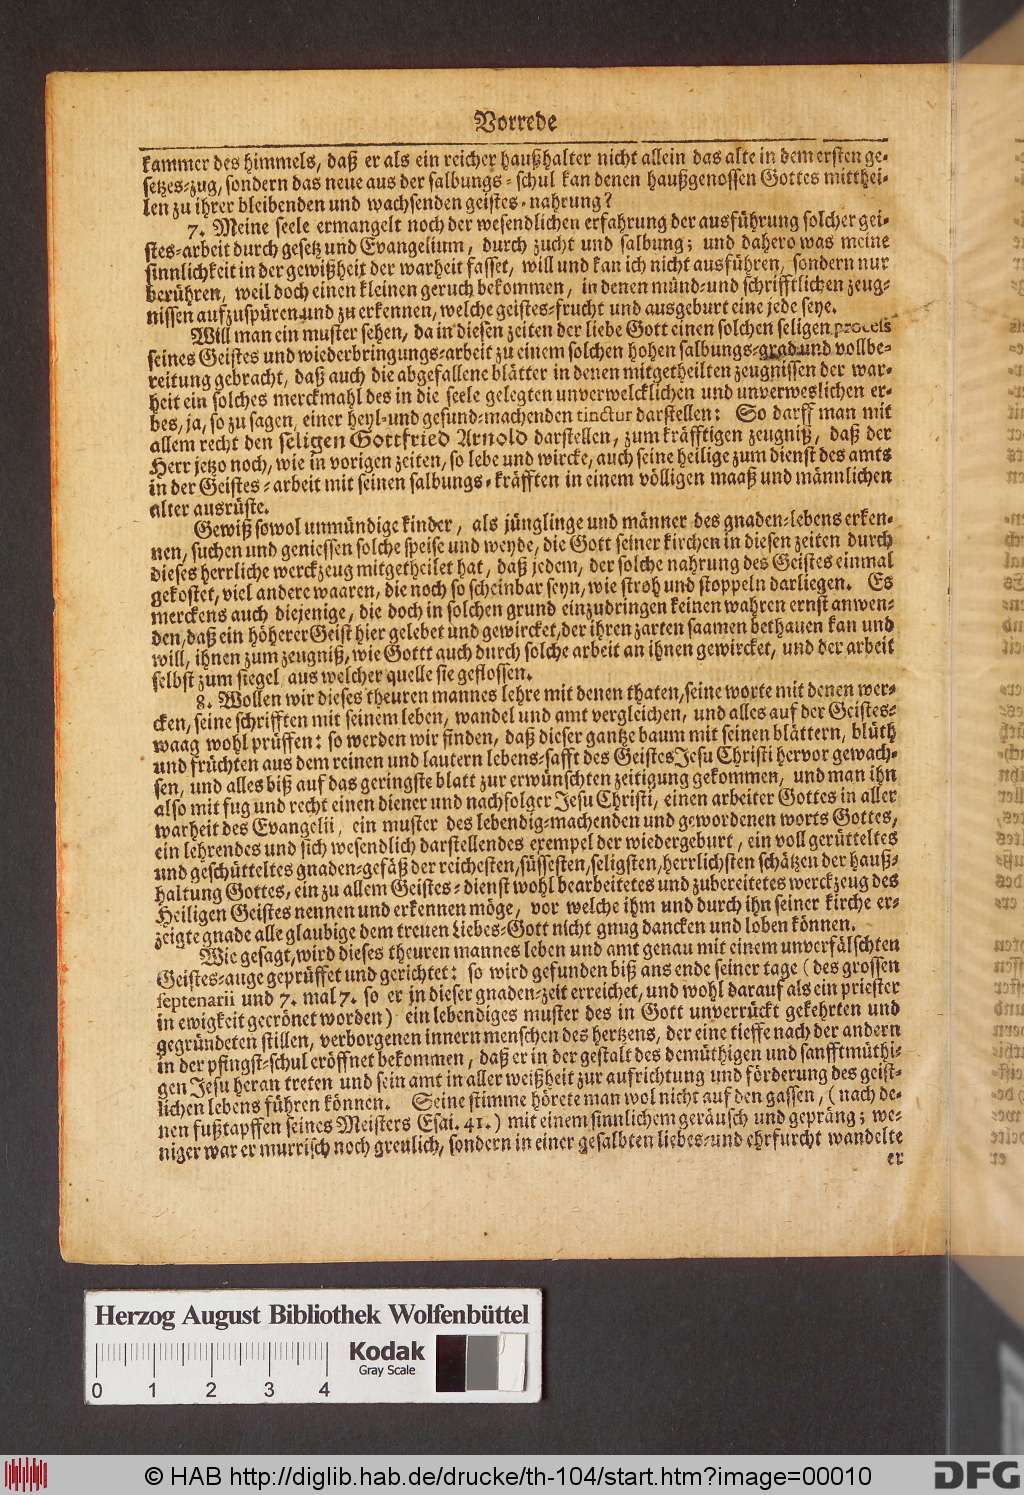 Vorrede
kammer des himmels, daß er als ein reicher haußhalter nicht allein das alte in dem ersten ge-
setzes-zug, sondern das neue aus der salbungs-schul kan denen haußgenossen Gottes mitthei-
len zu ihrer bleibenden und wachsenden geistes-nahrung?
7. Meine seele ermangelt noch der wesendlichen erfahrung der ausführung solcher gei-
stes-arbeit durch gesetz und Evangelium, durch zucht und salbung; und dahero was meine
sinnlichkeit in der gewißheit der warheit fasset, will und kan ich nicht ausführen, sondern nur
berühren, weil doch einen kleinen geruch bekommen, in denen münd-und schrifftlichen zeug-
nissen aufzuspüren und zu erkennen, welche geistes-frucht und ausgeburt eine jede seye.
Will man ein muster sehen, da in diesen zeiten der liebe Gott einen solchen seligen process
seines Geistes und wiederbringungs-arbeit zu einem solchen hohen salbungs-grad und vollbe-
reitung gebracht, daß auch die abgefallene blätter in denen mitgetheilten zeugnissen der war-
heit ein solches merckmahl des in die seele gelegten unverwelcklichen und unverweslichen er-
bes, ja, so zu sagen, einer heyl-und gesund-machenden tinctur darstellen: So darff man mit
allem recht den seligen Gottfried Arnold darstellen, zum kräfftigen zeugniß, daß der
Herr jetzo noch, wie in vorigen zeiten, so lebe und wircke, auch seine heilige zum dienst des amts
in der Geistes-arbeit mit seinen salbungs-kräfften in einem völligen maaß und männlichen
alter ausrüste.
Gewiß sowol unmündige kinder, als jünglinge und männer des gnaden-lebens erken-
nen, suchen und geniessen solche speise und weyde, die Gott seiner kirchen in diesen zeiten durch
dieses herrliche werckzeug mitgetheilet hat, daß jedem, der solche nahrung des Geistes einmal
gekostet, viel andere waaren, die noch so scheinbar seyn, wie stroh und stoppeln darliegen. Es
merckens auch diejenige, die doch in solchen grund einzudringen keinen wahren ernst anwen-
den, daß ein höherer Geist hier gelebet und gewircket, der ihren zarten saamen bethauen kan und
will, ihnen zum zeugniß, wie Gottt auch durch solche arbeit an ihnen gewircket, und der arbeit
selbst zum siegel, aus welcher quelle sie geflossen.
8. Wollen wir dieses theuren mannes lehre mit denen thaten, seine worte mit denen wer-
cken, seine schrifften mit seinem leben, wandel und amt vergleichen, und alles auf der Geistes-
waag wohl prüffen: so werden wir finden, daß dieser gantze baum mit seinen blättern, blüth
und früchten aus dem reinen und lautern lebens-safft des Geistes Jesu Christi hervor gewach-
sen, und alles biß auf das geringste blatt zur erwünschten zeitigung gekommen, und man ihn
also mit fug und recht einen diener und nachfolger Jesu Christi, einen arbeiter Gottes in aller
warheit des Evangelii, ein muster des lebendig-machenden und gewordenen worts Gottes,
ein lehrendes und sich wesendlich darstellendes exempel der wiedergeburt, ein voll gerütteltes
und geschütteltes gnaden-gefäß der reichesten, süssesten, seligsten, herrlichsten schätzen der hauß-
haltung Gottes, ein zu allem Geistes-dienst wohl bearbeitetes und zubereitetes werckzeug des
Heiligen Geistes nennen und erkennen möge, vor welche ihm und durch ihn seiner kirche er-
zeigte gnade alle glaubige dem treuen Liebes-Gott nicht gnug dancken und loben können.
Wie gesagt, wird dieses theuren mannes leben und amt genau mit einem unverfälschten
Geistes-auge geprüffet und gerichtet: so wird gefunden biß ans ende seiner tage (des grossen
septenarii und 7. mal 7. so er in dieser gnaden-zeit erreichet, und wohl darauf als ein priester
in ewigkeit gecrönet worden) ein lebendiges muster des in Gott unverrückt gekehrten und
gegründeten stillen, verborgenen innern menschen des hertzens, der eine tieffe nach der andern
in der pfingst-schul eröffnet bekommen, daß er in der gestalt des demüthigen und sanfftmüthi-
gen Jesu heran treten und sein amt in aller weißheit zur aufrichtung und förderung des geist-
lichen lebens führen können. Seine stimme hörete man wol nicht auf den gassen, (nach de-
nen fußtapffen seines Meisters Esai. 41.) mit einem sinnlichem geräusch und gepräng; we-
niger war er murrisch noch greulich, sondern in einer gesalbten liebes-und ehrfurcht wandelte
er
Herzog August Bibliothek Wolfenbüttel
Kodak
Gray Scale
0 1 2 3 4
© HAB http://diglib.hab.de/drucke/th-104/start.htm?image=00010
DFG